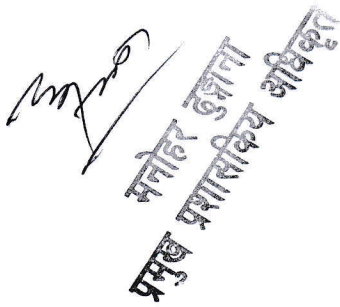 मनोहर ढुङ्गाना
प्रमुख प्रशासकिय अधिकृत